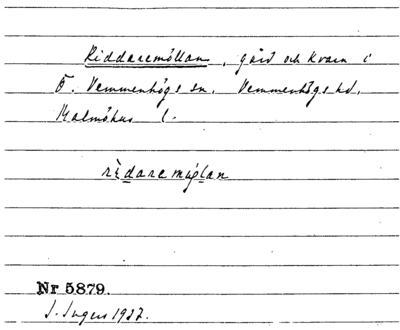 Riddaremöllan, gård och kvarn i
Ö. Vemmenhögs sn, Vemmenhögs hd,
Malmöhus l.
Nr 5879.
J. Ingers 1927.